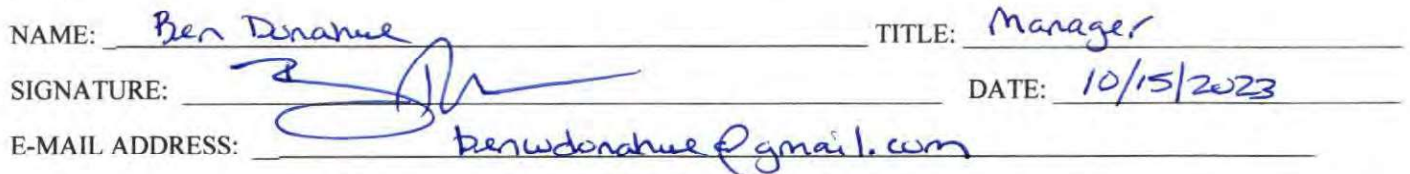 NAME: Ben Donahue TITLE: Manager
SIGNATURE: DATE: 10/15/2023
E-MAIL ADDRESS: benwdonahue@gmail.com